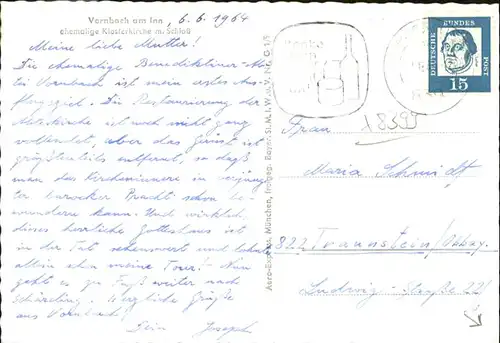 Vornbach am Inn, 6.6.1964
ehemalige Klosterkirche m. Schloß
Meine liebe Mutter!
Die ehemalige Benediktiner-Ab-
tei Vornbach ist mein erstes Aus-
flugsziel. Die Restaurierung der
Klosterkirche ist noch nicht ganz
vollendet, aber das Gerüst ist
größtenteils entfernt, so daß
man das Kircheninnere in verjüng-
ter barocker Pracht schon be-
wundern kann. Und wirklich,
dieses herrliche Gotteshaus ist
in der Tat sehenswert und lohnt
allein schon meine Tour! Nun
geht es zu Fuß weiter nach
Schärding. Herzliche Grüße
aus Vornbach!
Dein Joseph
Aero-Express, München, freigeg. Bayer. St. M. f. W. u. V. Nr. G 5/
DEUTSCHE BUNDESPOST
15
18399
Frau
Maria Schmidt
822 Traunstein/Obbay.
Ludwig-Straße 22/